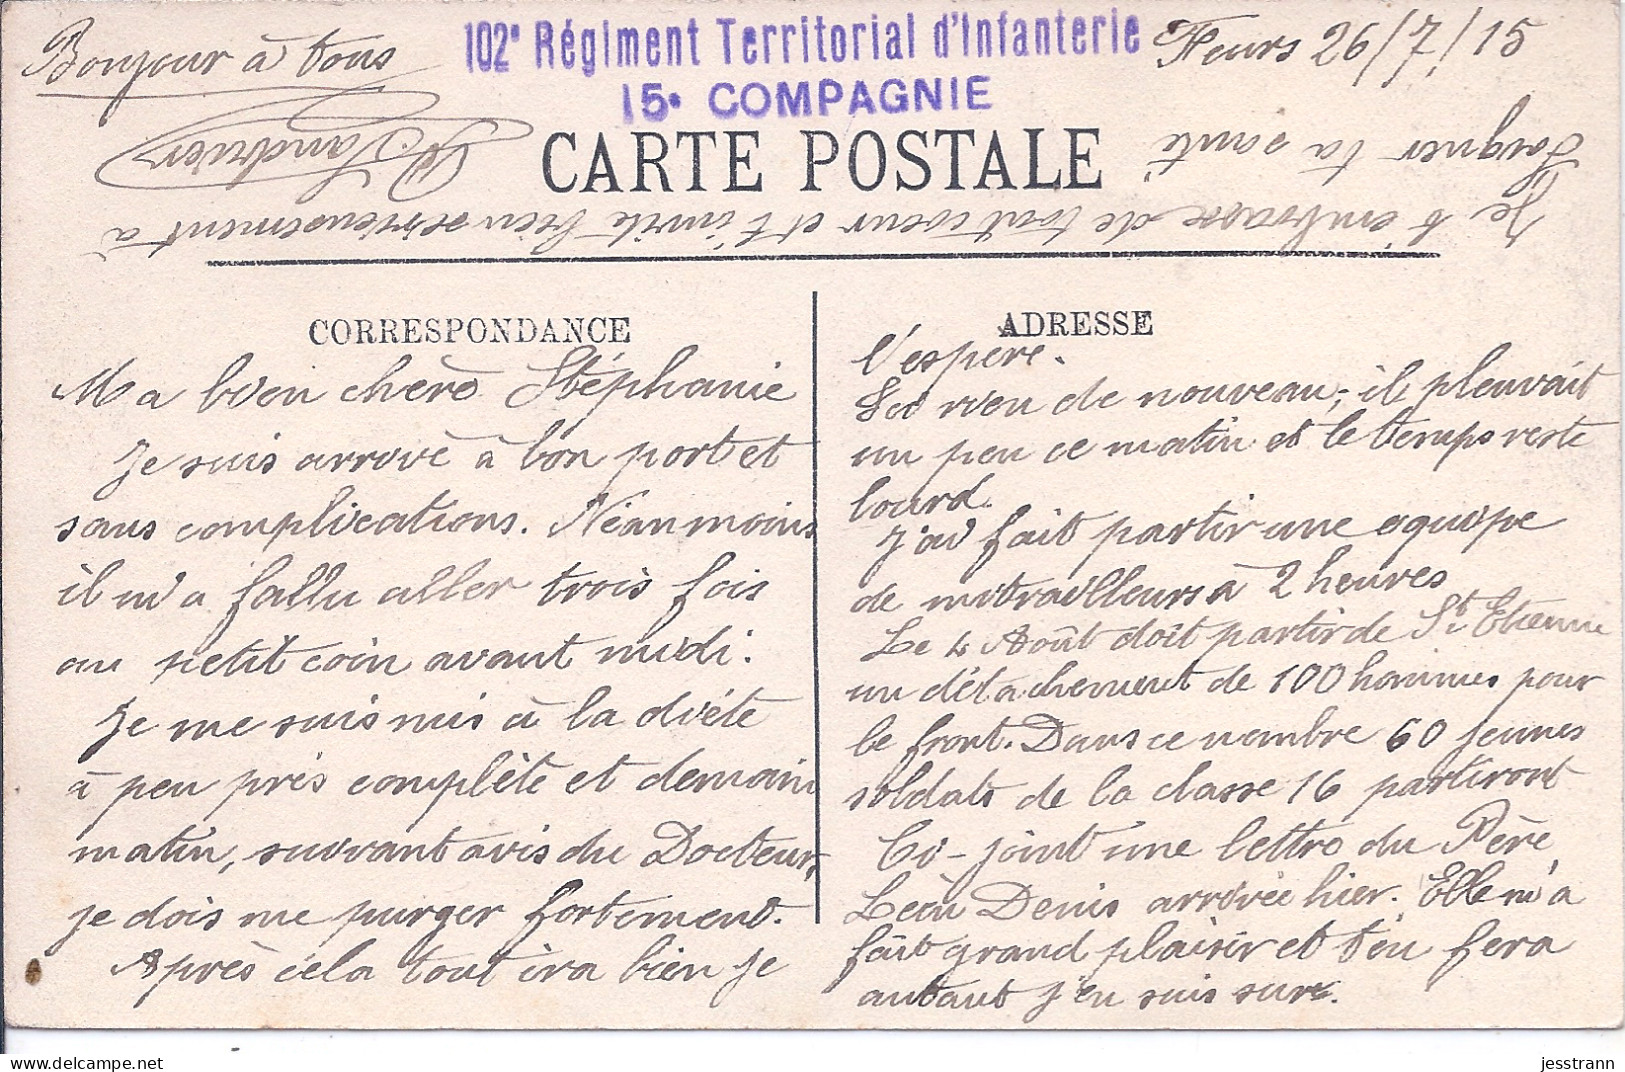 Bonjour à tous
102e Régiment Territorial d'Infanterie
15e COMPAGNIE
Feurs 26/7/15
CARTE POSTALE
CORRESPONDANCE
Ma bien chère Stéphanie
Je suis arrivé à bon port et
sans complications. Néanmoins
il m'a fallu aller trois fois
au petit coin avant midi.
Je me suis mis à la diète
à peu près complète et demain
matin, suivant avis du Docteur,
je dois me purger fortement.
Après cela tout ira bien je
ADRESSE
l'espère.
Ici rien de nouveau, il pleuvait
un peu ce matin et le temps reste
lourd.
J'ai fait partir une équipe
de mitrailleurs à 2 heures
Le 4 Août doit partir de St Etienne
un détachement de 100 hommes pour
le front. Dans ce nombre 60 jeunes
soldats de la classe 16 partiront
Ci-joint une lettre du Père
Léon Denis arrivée hier. Elle m'a
fait grand plaisir et t'en fera
autant j'en suis sur.
Je t'embrasse de tout coeur et t'invite bien sérieusement à
soigner ta santé.
jesstrann